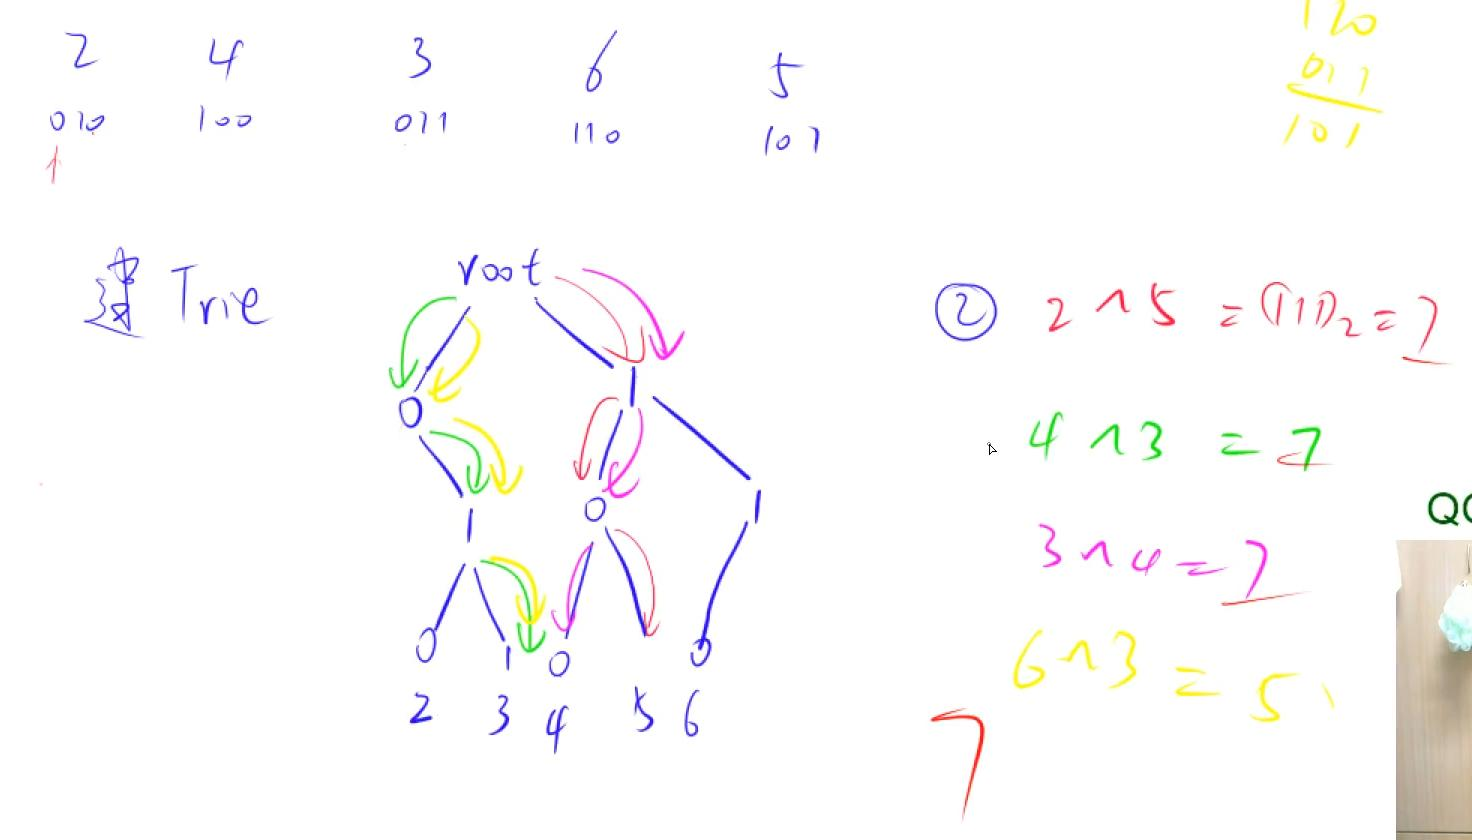 2 4 3 6 5
010 100 011 110 101
110
011
101
建 Trie
root
0 1
1 0 1
0 1 0 0
2 3 4 5 6
② 2 ^ 5 = (111)2 = 7
4 ^ 3 = 7
3 ^ 4 = 7
6 ^ 3 = 5
7